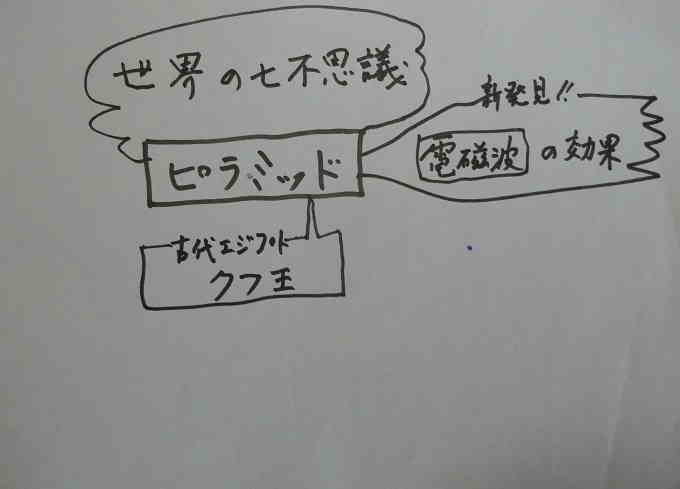 世界の七不思議
新発見!!
ピラミッド
電磁波の効果
古代エジプト
クフ王